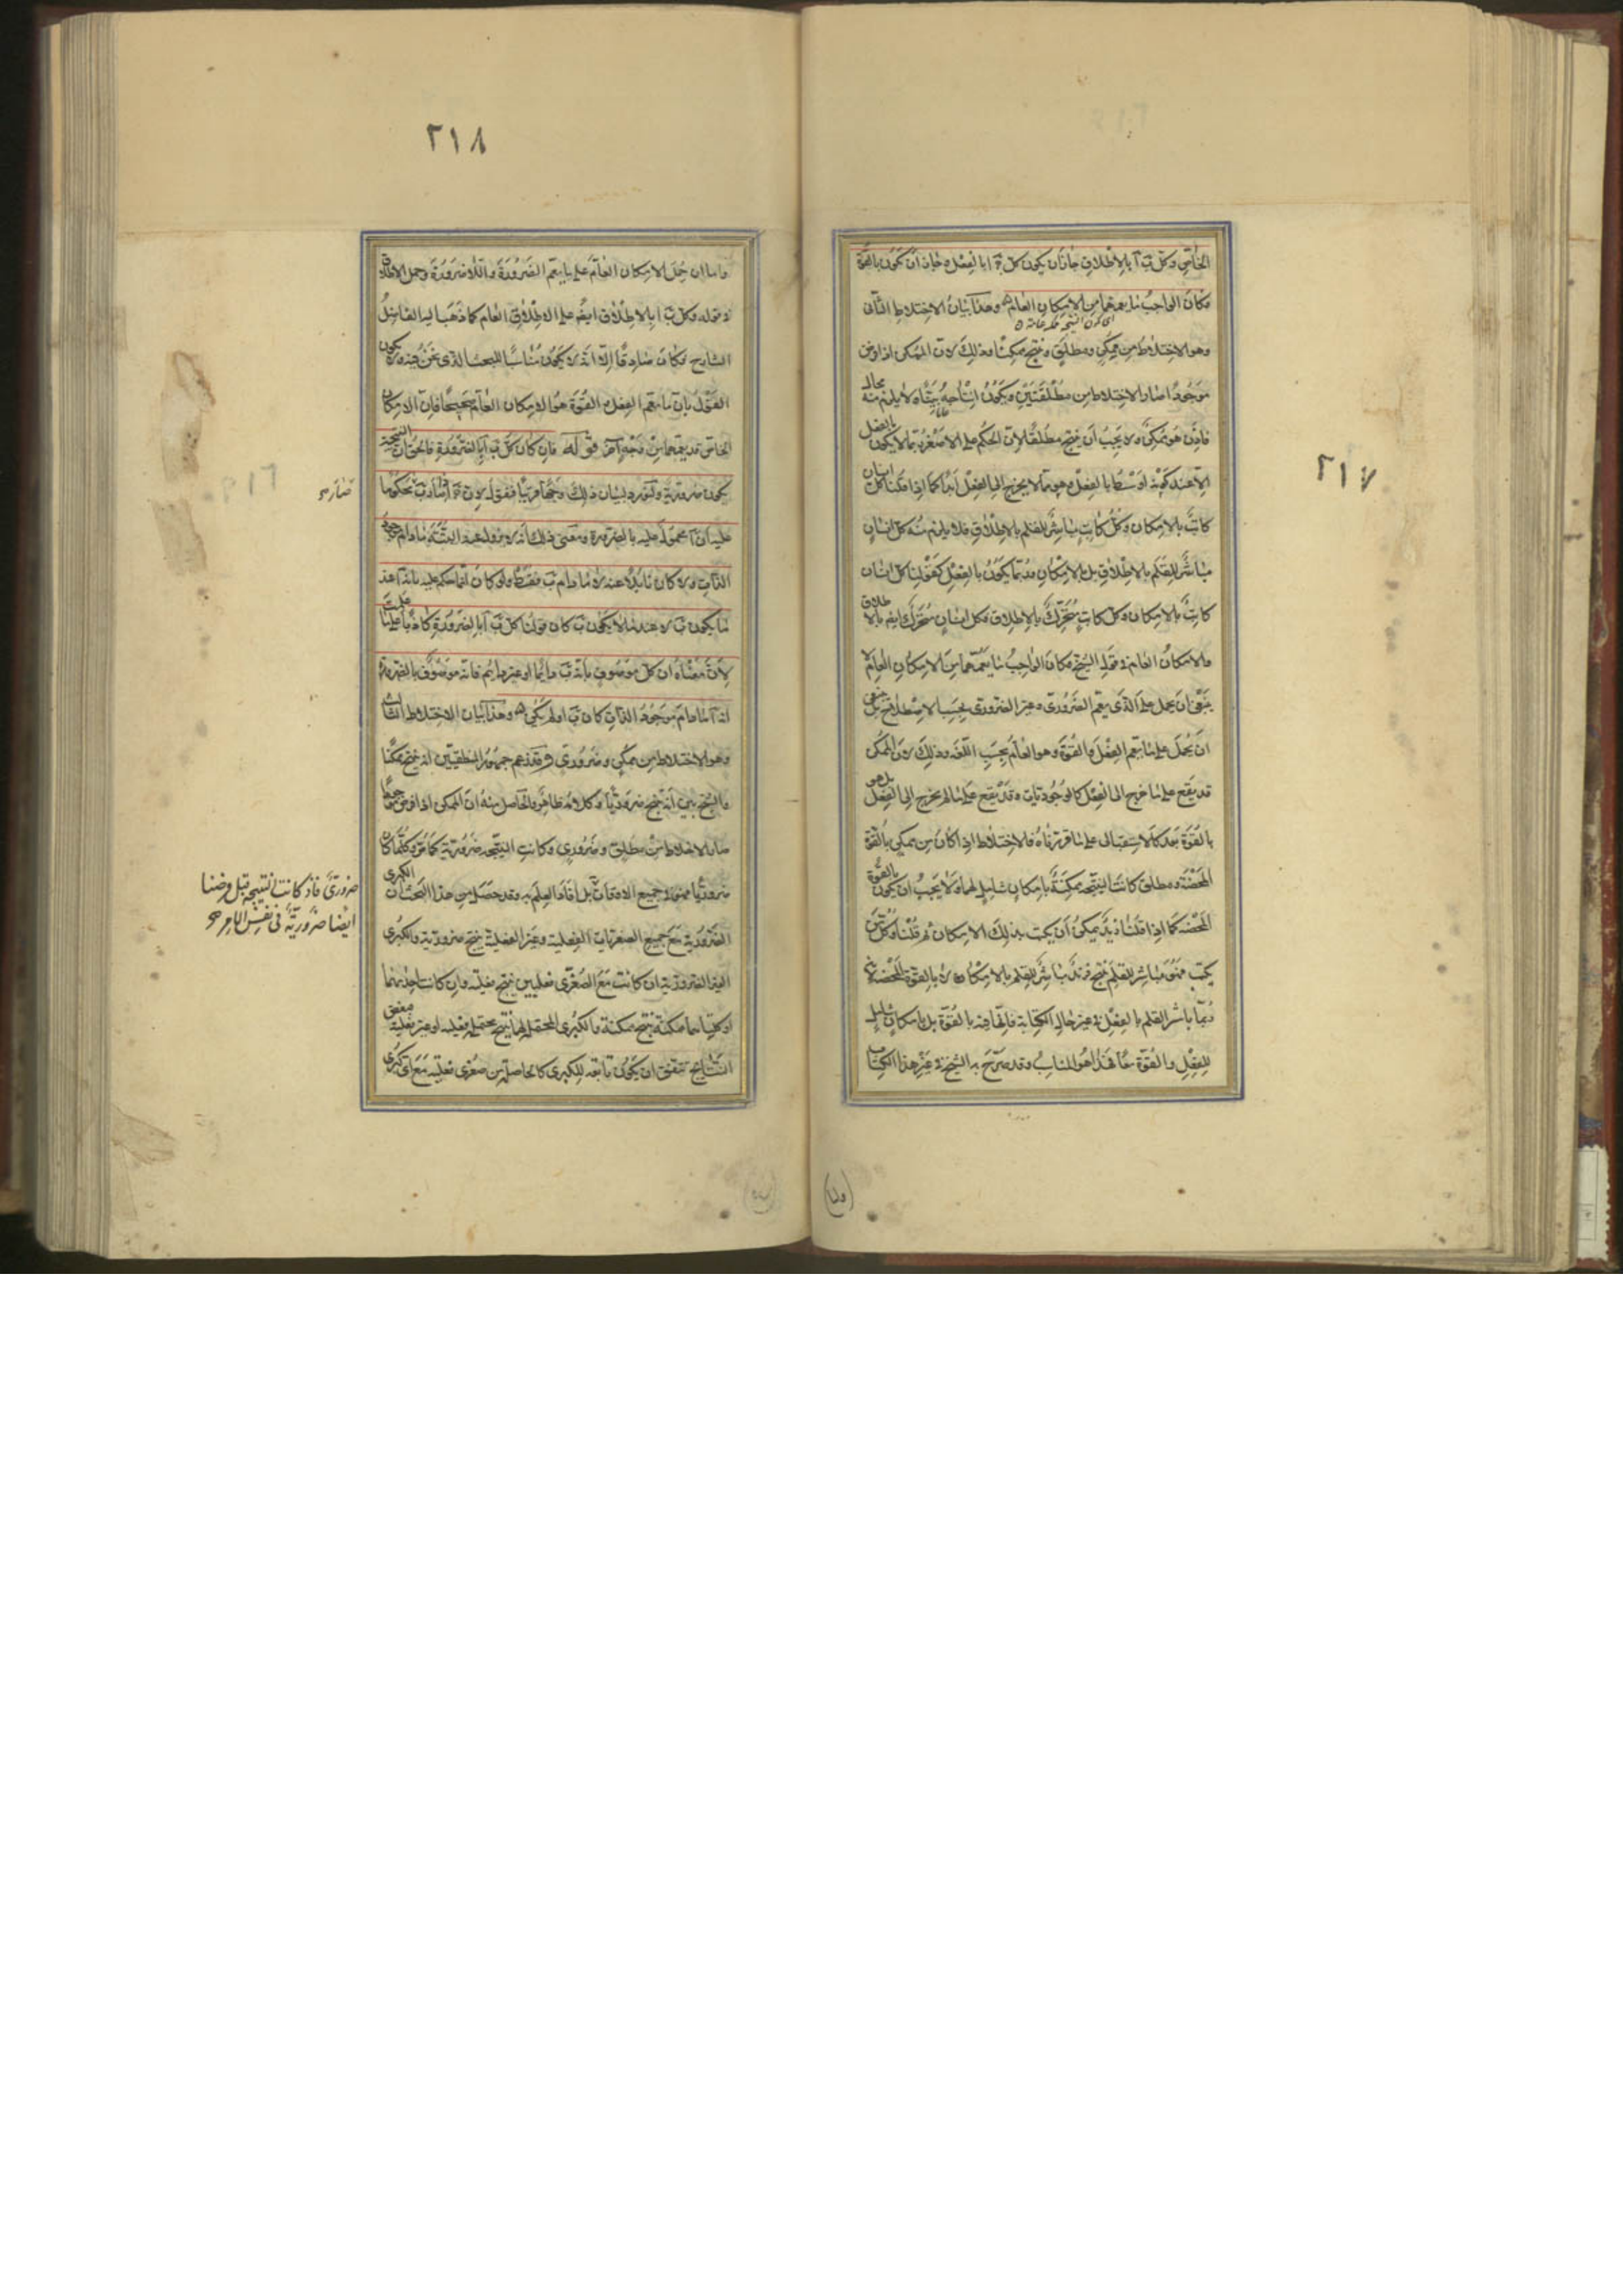 ٢١٧
الخاص وكل ب آ بالاطلاق جاز ان يكون كل ج ا بالفعل وجاز ان يكون بالقوة
فكان الواجب ما يعمهما من الامكان العام وهذا بيان الاختلاط الثانى
وهو الاختلاط من ممكن ومطلق وينتج ممكنا وذلك لان الممكن اذا فرض
موجودا صار الاختلاط من مطلقتين ويكون انتاجه بينا ولا يلزم منه محال
فاذن هو ممكن ولا يجب ان ينتج مطلقا لان الحكم على الاصغر ربما لا يكون بالفعل
الا عند كونه اوسط بالفعل وهو ربما لا يخرج الى الفعل ابدا كما اذا قلنا كل انسان
كاتب بالامكان وكل كاتب مباشر للقلم بالاطلاق فلا يلزم منه كل انسان
مباشر للقلم بالاطلاق بل بالامكان وربما يكون بالفعل كقولنا كل انسان
كاتب بالامكان وكل كاتب متحرك بالاطلاق فكل انسان متحرك ايضا بالاطلاق
والامكان العام فى قول الشيخ فكان الواجب ما يعمهما من الامكان العام لا
ينبغى ان يحمل على الذى يعم الضرورى وغير الضرورى بحسب الاصطلاح بل ينبغى
ان يحمل على ما يعم الفعل والقوة وهو العام بحسب اللغة وذلك لان الممكن
قد يقع على ما خرج الى الفعل كالوجوديات وقد يقع على ما لم يخرج الى الفعل بل هو
بالقوة بعد كالاستقبالى على ما قررناه فالاختلاط اذا كان من ممكن بالقوة
المحضة ومطلق كانت النتيجة ممكنة بامكان شامل لهما ولا يجب ان يكون بالقوة
المحضة كما اذا قلنا زيد يمكن ان يكتب بذلك الامكان ثم قلنا وكل من
يكتب فهو مباشر للقلم ينتج فزيد مباشر للقلم بالامكان لا بالقوة المحضة
ربما باشر القلم بالفعل فى غير حال الكتابة فانها فيه بالقوة بل بامكان شامل
للفعل والقوة معا فهذا هو المناسب وقد صرح به الشيخ فى غير هذا الكتاب
٢١٨
واما ان حمل الامكان العام على ما يعم الضرورة واللاضرورة وحمل الاطلاق
فى قوله وكل ب ا بالاطلاق ايضا على الاطلاق العام كما ذهب اليه الفاضل
الشارح فكان صادقا الا انه لا يكون مناسبا للبحث الذى نحن فيه ولا يكون
القول بان ما يعم الفعل والقوة هو الامكان العام صحيحا فان الامكان
الخاص قد يعمهما من وجه آخر قوله فان كان كل ب آ بالضرورة فالحق ان النتيجة
يكون ضرورية ولنورد لبيان ذلك وجها قريبا فنقول لان ج اذا صار ب صار محكوما
عليه ان آ محمول عليه بالضرورة ومعنى ذلك انه لا يزول عنه البتة ما دام موجود
الذات ولا كان زائلا عنه لا ما دام ب فقط ولو كان انما حكم عليه بانه آ عند
ما يكون ب لا عند ما لا يكون ب كان قولنا كل ب آ بالضرورة كاذبا على ما علمت
لان معناه ان كل موصوف بانه ب دايما او غير دايم فانه موصوف بالضرورة
انه آ ما دام موجود الذات كان ب او لم يكن وهذا بيان الاختلاط الثالث
وهو الاختلاط من ممكن وضرورى وقد زعم جمهور المنطقيين انه ينتج ممكنا
والشيخ بين انه ينتج ضروريا وكلامه ظاهر والحاصل منه ان الممكن اذا فرض موجودا
صار الاختلاط من مطلق وضرورى وكانت النتيجة ضرورية كما مر وكلما كان
ضروريا فهو فى جميع الاوقات بل افاد العلم به وقد حصل من هذا البحث ان الكبرى
الضرورية مع جميع الصغريات الفعلية وغير الفعلية ينتج ضرورية والكبرى
الغير الضرورية ان كانت مع الصغرى فعليين ينتج فعلية وان كانت احديهما
او كلتاهما ممكنة ينتج ممكنة والكبرى المحتملة لهما ينتج محتملة فعلية او غير فعلية فبعض
النتايج تتفق ان يكون تابعة للكبرى كالحاصلة من صغرى فعلية مع اى كبرى
ضرورى فاذن كانت النتيجة قبل فرضنا
ايضا ضرورية فى نفس الامر صح